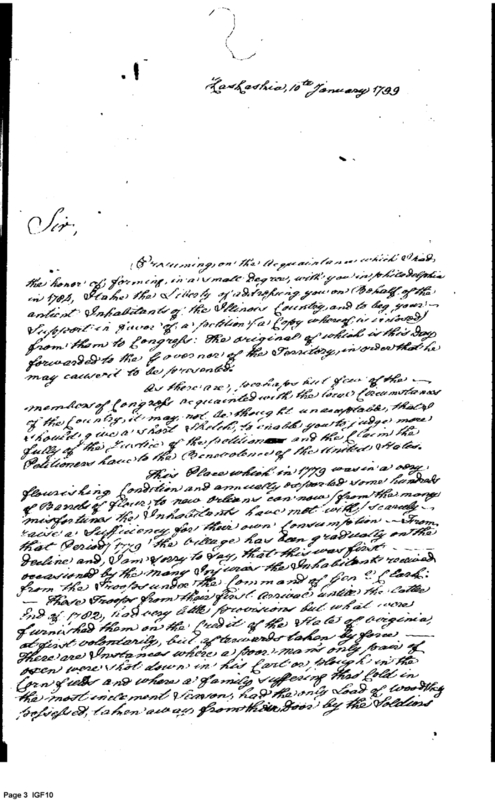 Kaskaskia, 10th January 1799
Sir,
Presuming, on the Acquaintance which I had
the honor of forming, in a small degree, with you in philadelphia
in 1784, I take the Liberty of addressing you on Behalf of the
antient Inhabitants of the Illinois Country, and to beg your
Support in favor of a petition (a Copy whereof is inclosed)
from them to Congress: the original of which is this Day
forwarded to the Governor of the Territory, in order that he
may cause it to be presented.
As there are, perhaps but few of the
members of Congress acquainted with the local Circumstances
of the Country, it may, not be thought unacceptable, that I
should give a short Sketch, to enable you to judge more
fully of the Justice of the petition and the Claim the
Petitioners have to the Benevolence of the United States.
This Place which in 1779 was in a very
flourishing Condition and annually exported some hundreds
of Barrels of flour, to new Orleans can now (from the many
misfortunes the Inhabitants have met with) scarcely
raise a sufficiency for their own Consumption — From
that Period 1779 the Village has been gradually on the
decline and, I am sorry to say, that this was first
occasioned by the many Injuries the Inhabitants received
from the Troops under the Command of Genl Clark:
These Troops from their first arrival until the latter
End of 1782, had very little provisions but what were
furnished them on the Credit of the State of Virginia,
at first voluntarily, but afterwards taken by force
There are Instances where a poor man's only pair of
oxen were shot down in his Cart or plough in the
Corn field and where a family suffering the Cold in
the most inclement Season, had the only Load of Wood they
possessed, taken away from their Door by the Soldiers
Page 3 IGF10